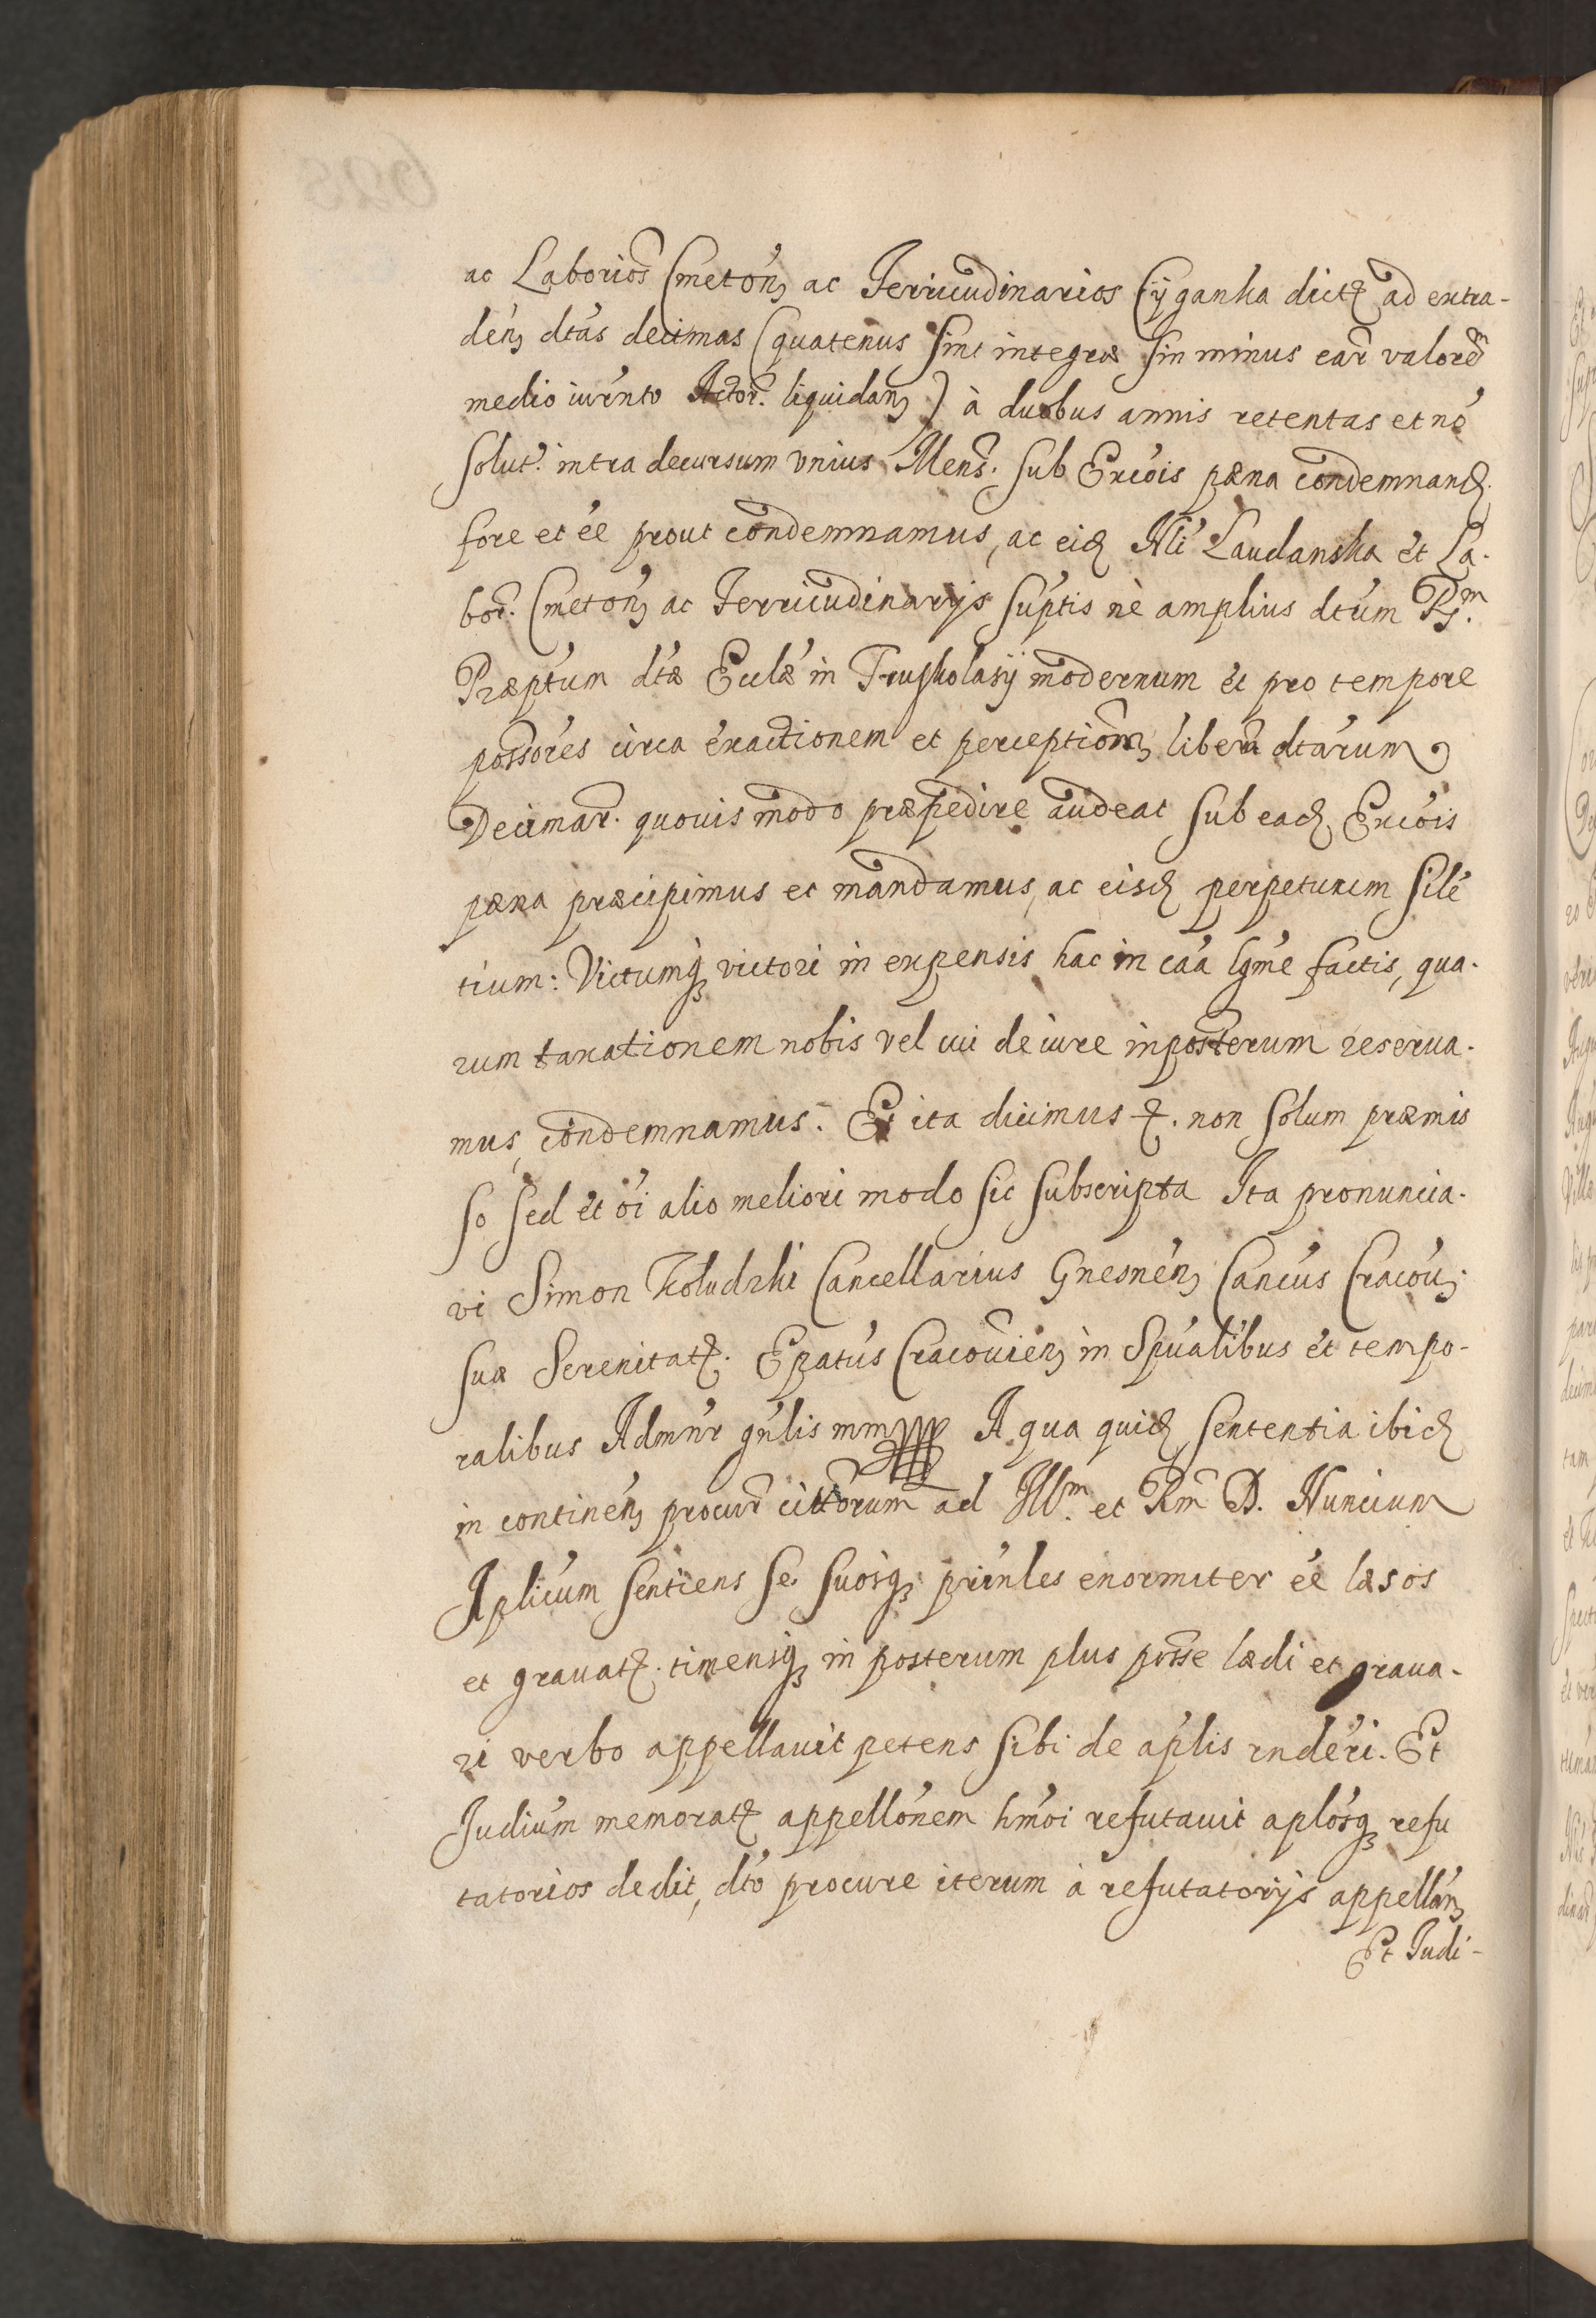 ac Laborios Cmeton, ac Ferricudinarios Cyganka dict, ad extra-
den, dtas decimas (quatenus sint integræ sin minus ear valorem
medio iurento Actor. liquidan,) à duobus annis retentas et nõ
solut. intra decursum vnius Mens. sub Excois pæna condemnand.
fore et ee prout condemnamus, ac eid Nli Laudanska et La-
bor. Cmeton, ac Ferricudinarijs suptis nè amplius dtum Rm.
Præptum dtæ Eclæ in Truskolasÿ modernum et pro tempore
possores circa exactionem et perception, libera dtarum
Decimar. quouis modo præpedire audeat sub ead, Excois
pæna præcipimus et mandamus, ac eisd perpetuum silẽ
tium: Victumq, victori in expensis hac in caa lgme factis, qua-
rum taxationem nobis vel cui de iure inposterum reserua-
mus, condemnamus. Et ita dicimus &. non solum præmis
so sed et oi alio meliori modo sic subscripta Ita pronuncia-
vi Simon Koludzki Cancellarius Gnesnen, Cancus Cracou,
suæ Serenitat. Epatus Cracouien, in Spualibus et tempo-
ralibus Admnr gnlis mmppp A qua quid sententia ibid
in continen, procur citorum ad Illm. et Rm D. Nuncium
Aplicum sentiens se suosq, prinles enormiter ee læsos
et grauat. timensq, in posterum plus posse lædi et graua-
ri verbo appellauit petens sibi de aplis rnderi. Et
Judium memorat appellonem hmoi refutauit aplosq, refu
tatorios dedit, dto procure iterum à refutatorijs appellan,
Et Judi-